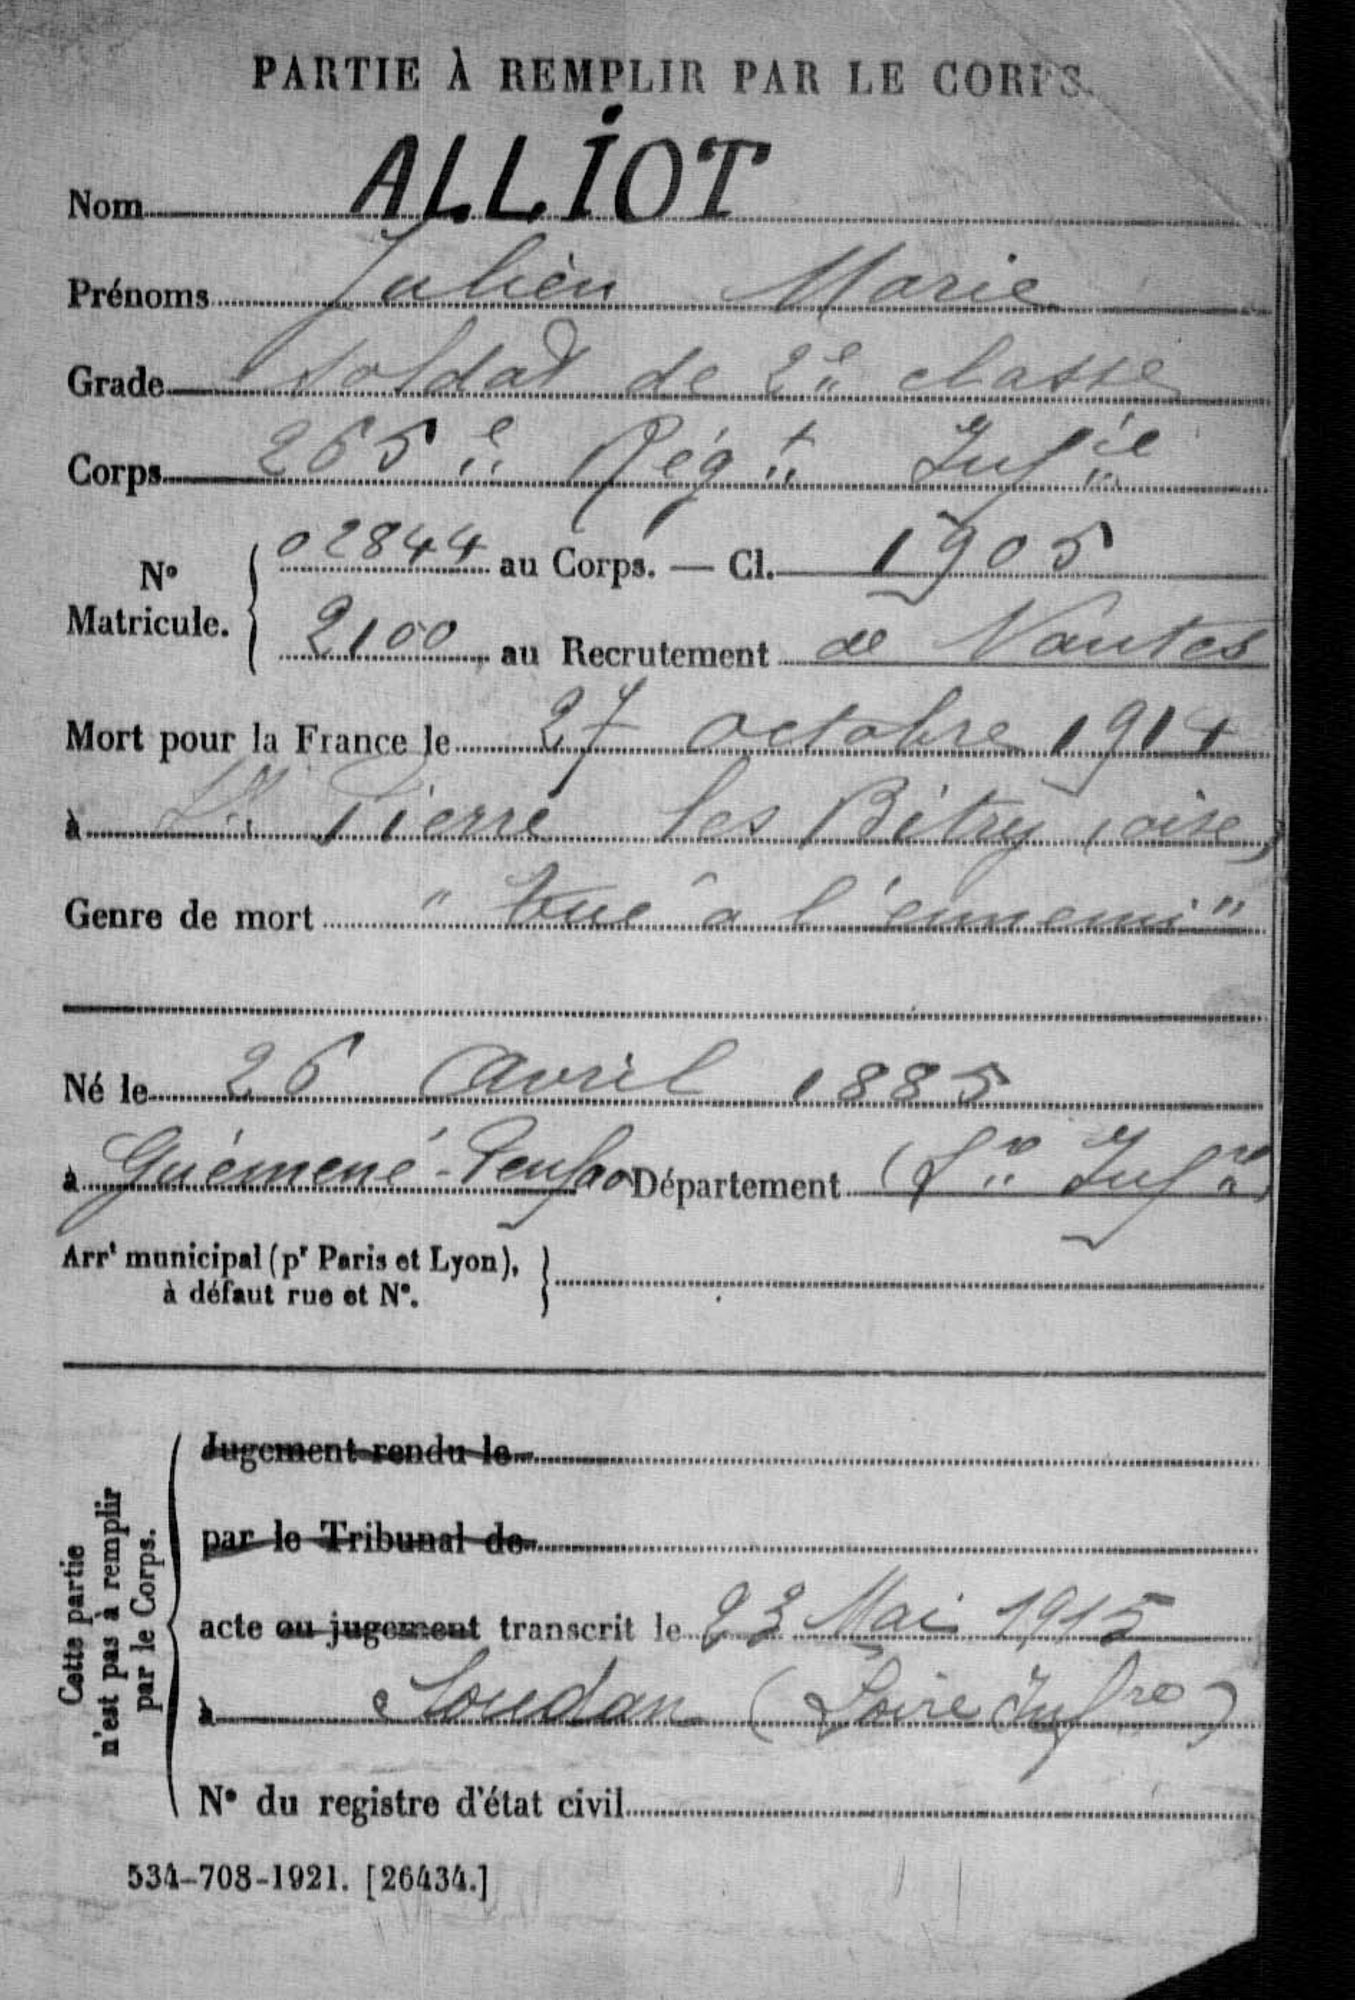 PARTIE À REMPLIR PAR LE CORPS.
Nom ALLIOT
Prénoms Julien Marie
Grade Soldat de 2e classe
Corps 265e Régt Infie
No Matricule. { 02844 au Corps. — Cl. 1905
2100 au Recrutement de Nantes
Mort pour la France le 27 octobre 1914
à St Pierre les Bitry (oise)
Genre de mort "tué à l'ennemi"
Né le 26 Avril 1885
à Guémené-Penfao Département (Lre Infre)
Arrt municipal (pr Paris et Lyon), }
à défaut rue et No.
Cette partie
n'est pas à remplir
par le Corps.
Jugement rendu le
par le Tribunal de
acte ou jugement transcrit le 23 Mai 1915
à Soudan (Loire Infre)
No du registre d'état civil
534-708-1921. [26434.]